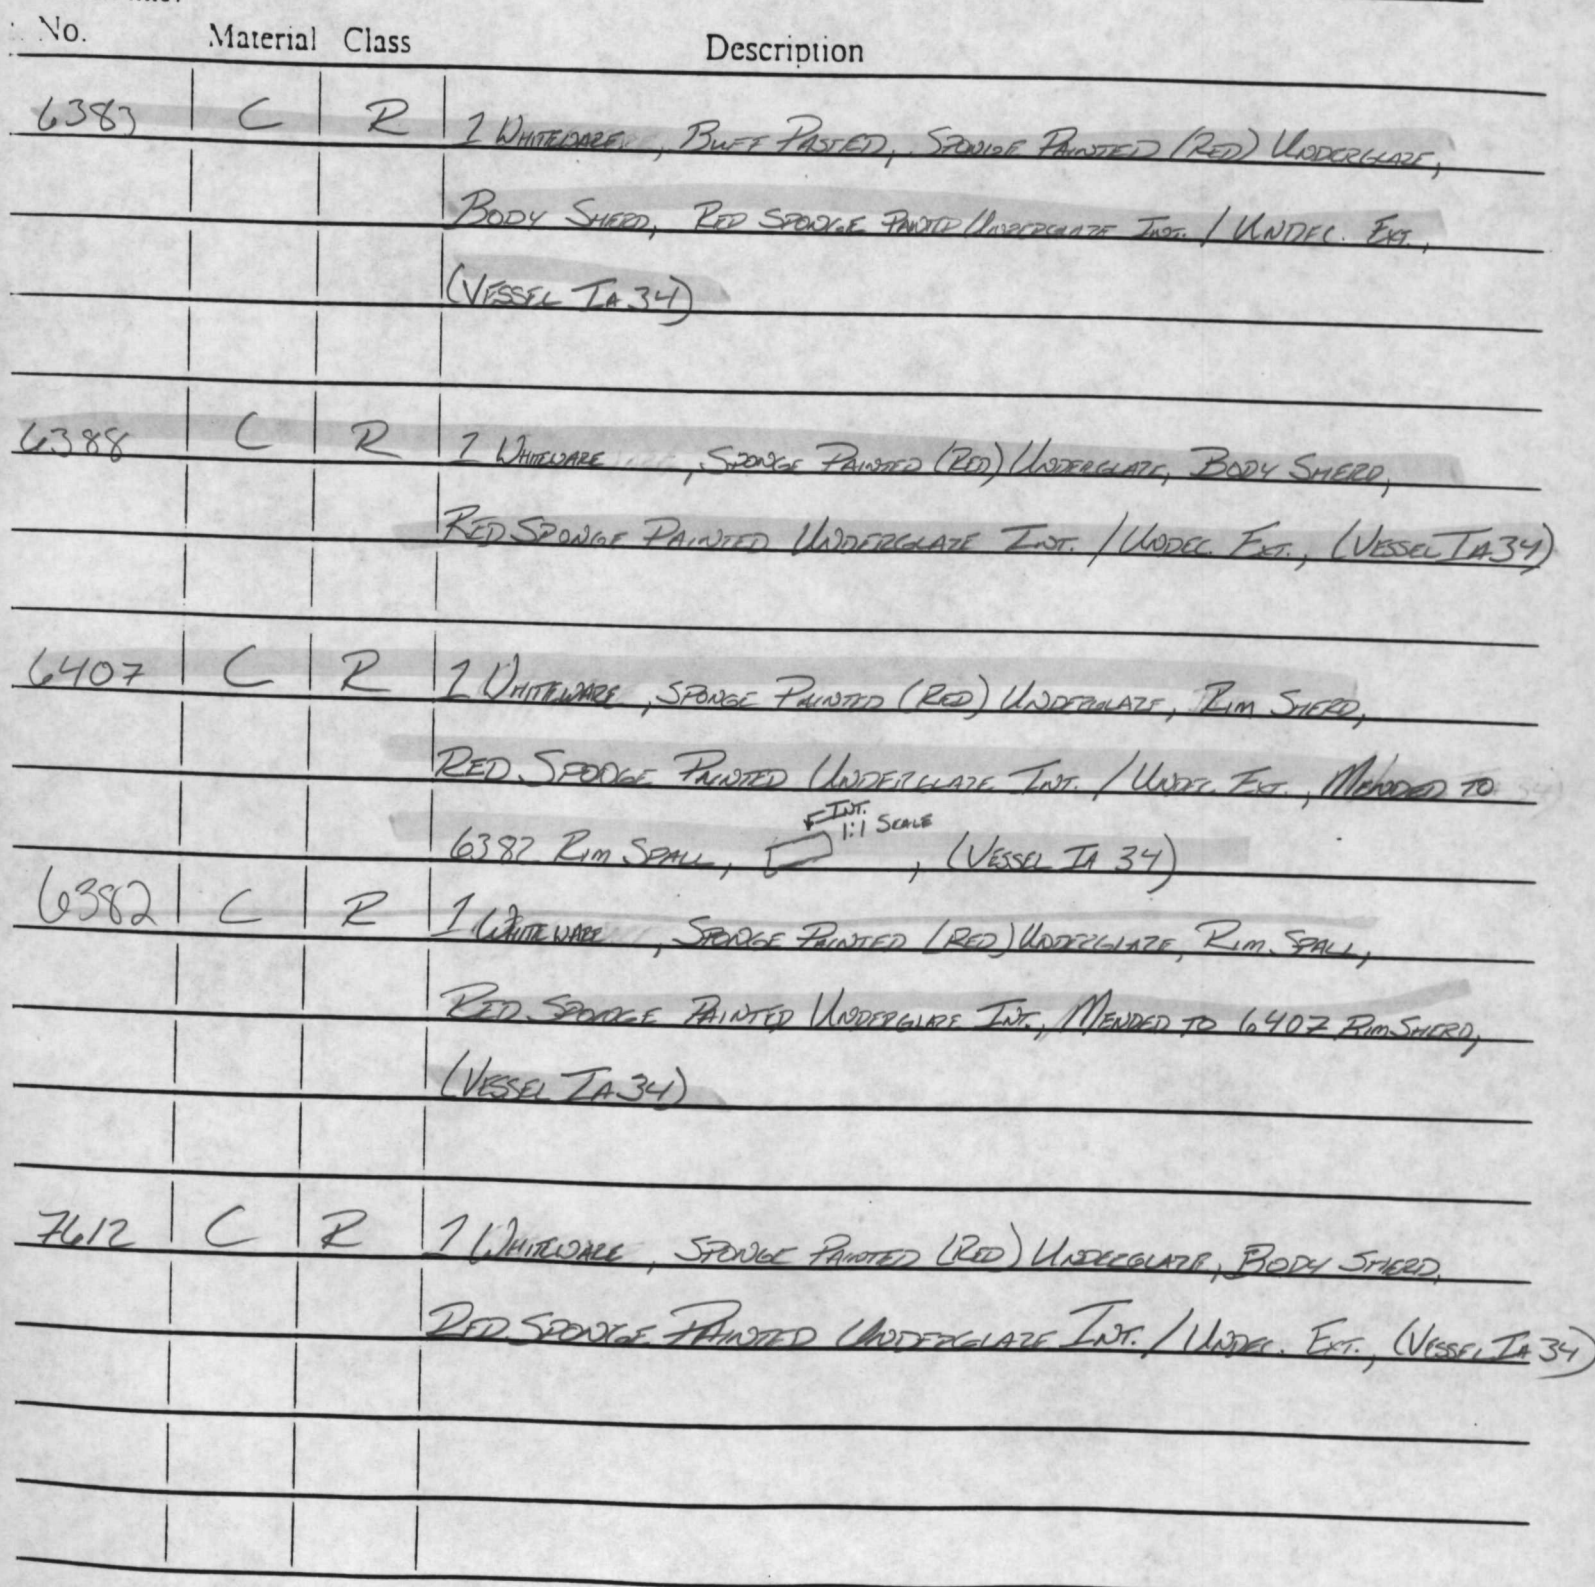 No. Material Class Description
6383 C R 1 WHITEWARE, BUFF PASTED, SPONGE PAINTED (RED) UNDERGLAZE,
BODY SHERD, RED SPONGE PAINTED UNDERGLAZE INT. / UNDEC. EXT.,
(VESSEL IA 34)
6388 C R 1 WHITEWARE, SPONGE PAINTED (RED) UNDERGLAZE, BODY SHERD,
RED SPONGE PAINTED UNDERGLAZE INT. / UNDEC. EXT., (VESSEL IA 34)
6407 C R 1 WHITEWARE, SPONGE PAINTED (RED) UNDERGLAZE, RIM SHERD,
RED SPONGE PAINTED UNDERGLAZE INT. / UNDEC. EXT., MENDED TO
INT.
1:1 SCALE
6382 RIM SPALL, , (VESSEL IA 34)
6382 C R 1 WHITEWARE, SPONGE PAINTED (RED) UNDERGLAZE, RIM SPALL,
RED SPONGE PAINTED UNDERGLAZE INT., MENDED TO 6407 RIM SHERD,
(VESSEL IA 34)
7612 C R 1 WHITEWARE, SPONGE PAINTED (RED) UNDERGLAZE, BODY SHERD,
RED SPONGE PAINTED UNDERGLAZE INT. / UNDEC. EXT., (VESSEL IA 34)